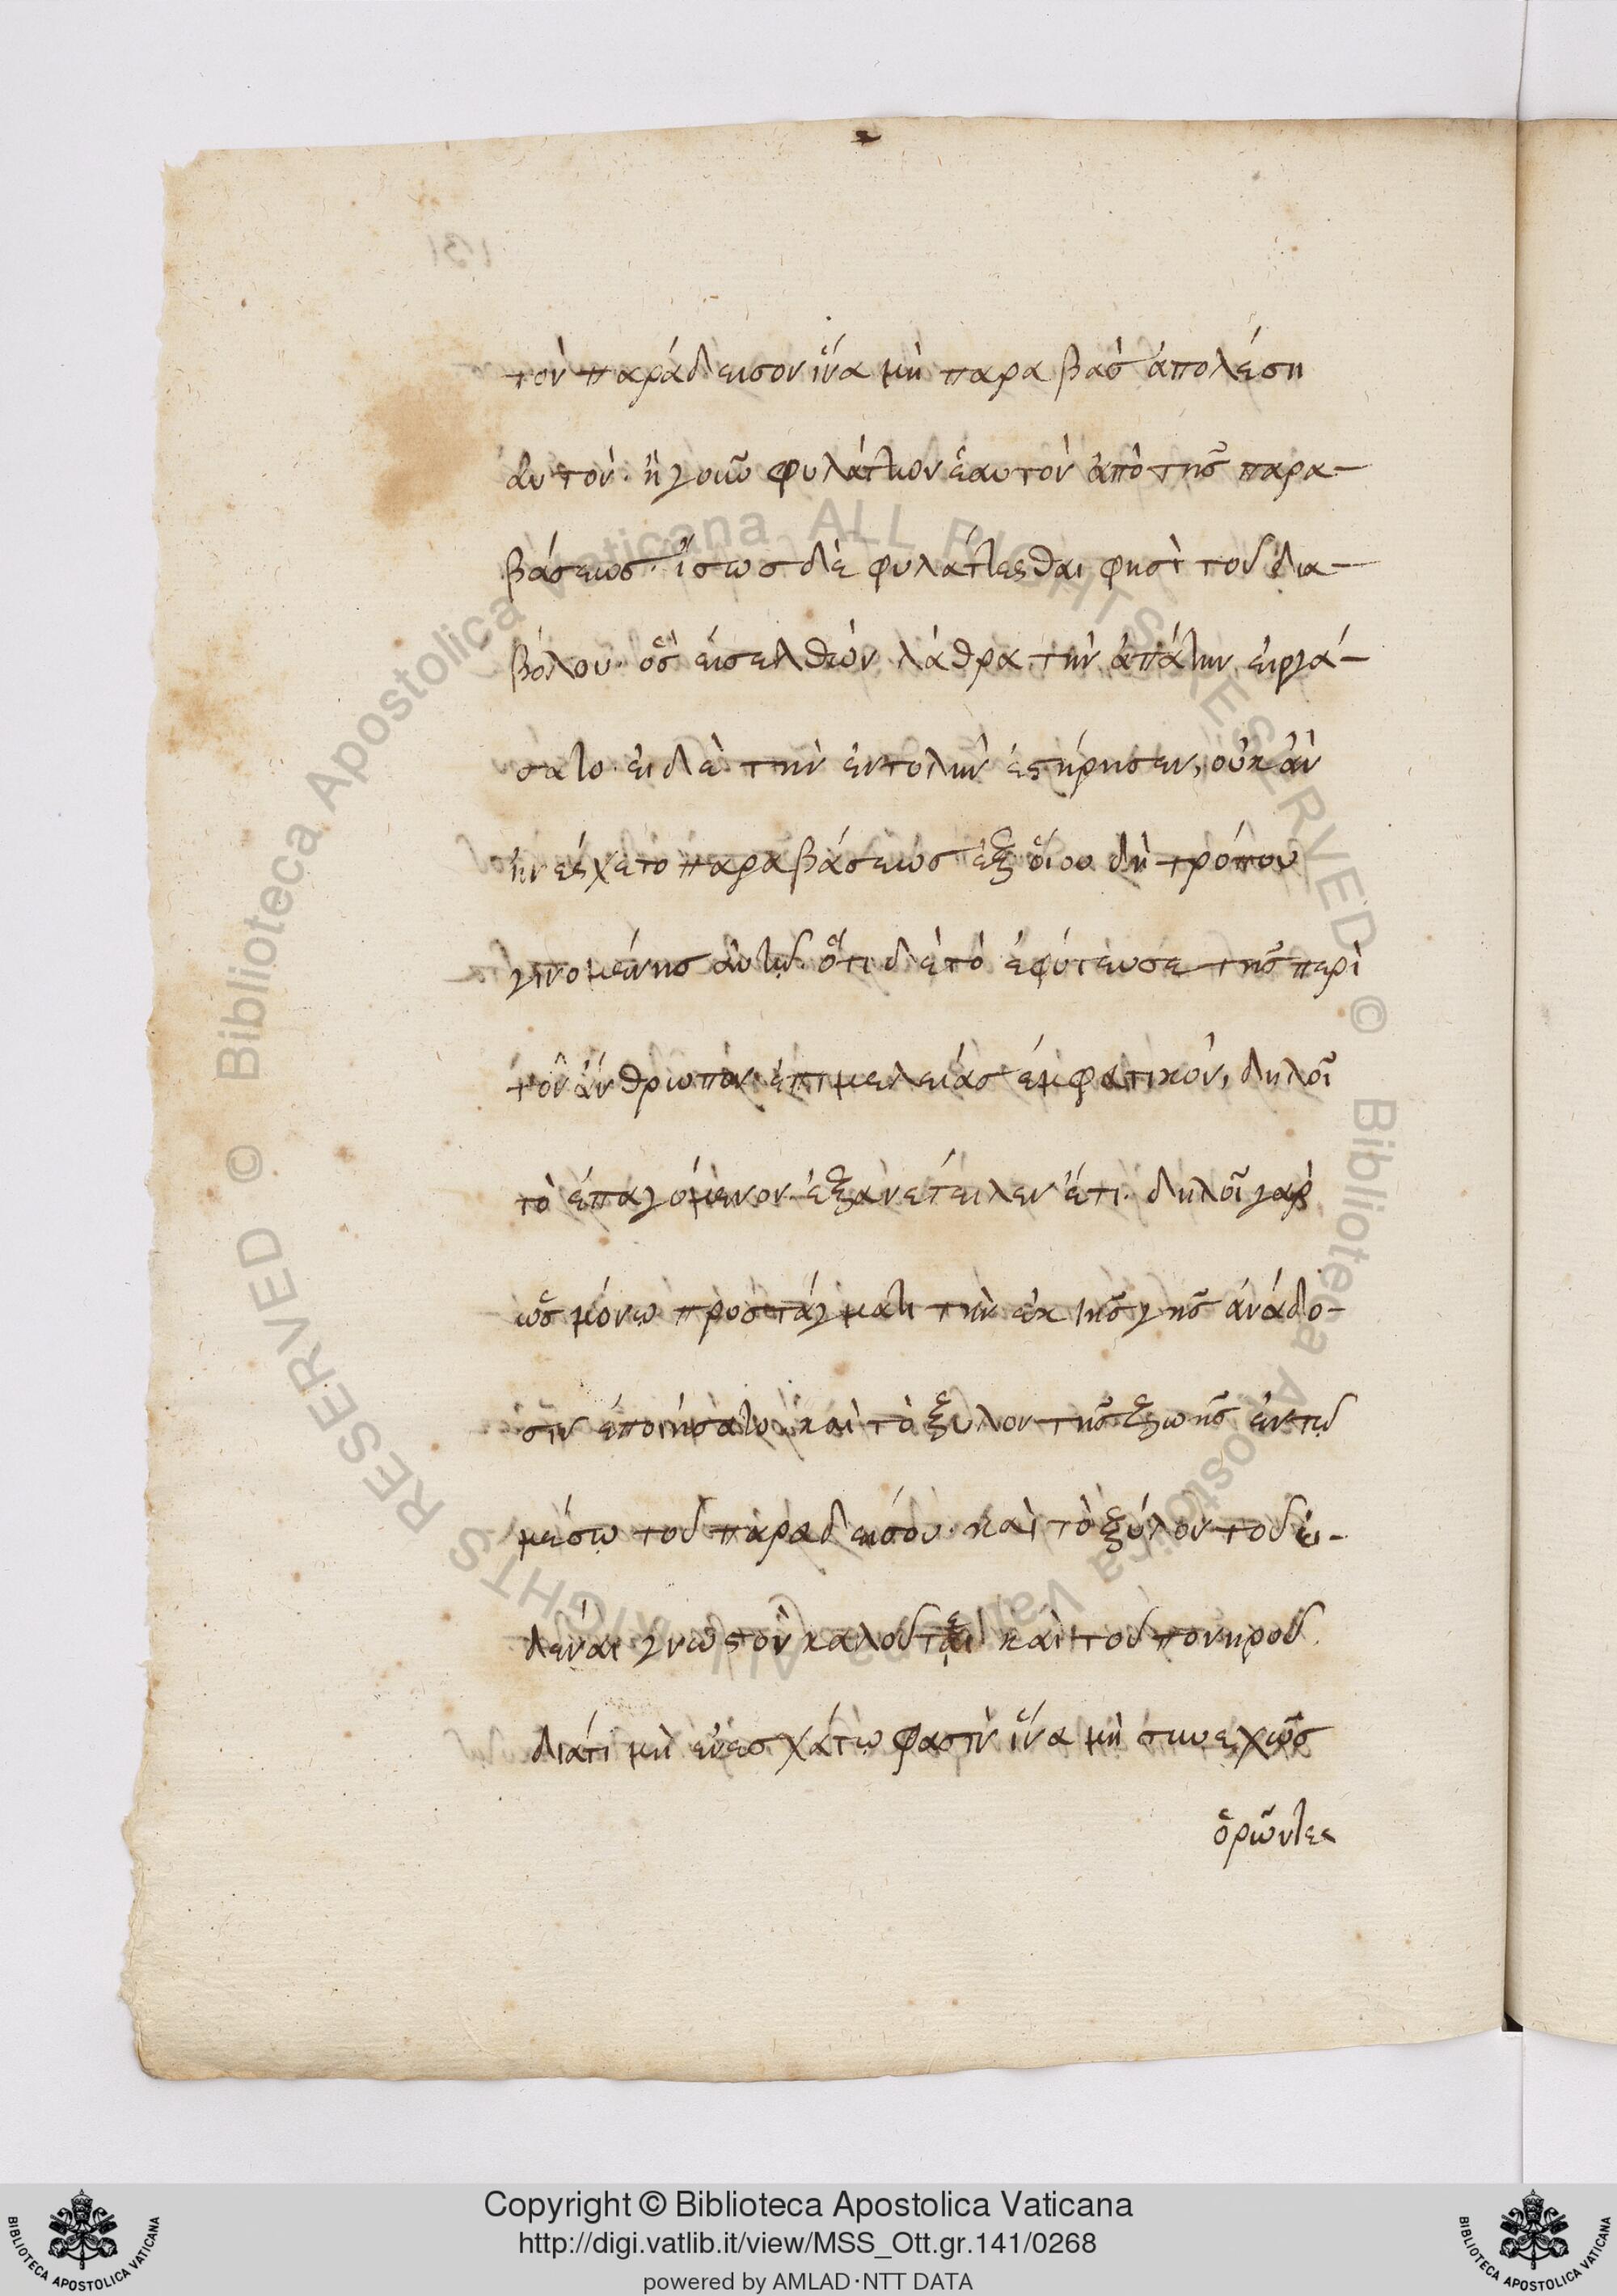 τὸν παράδεισον ἵνα μὴ παραβὰς ἀπολέση
αὐτόν· ἤγουν φυλάττων ἑαυτὸν ἀπὸ τῆς παρα-
βάσεως· ἴσως δὲ φυλάττεσθαι φησὶ τοῦ δια-
βόλου· ὃς εἰσελθὼν λάθρα τὴν ἀπάτην εἰργά-
σατο· εἰ δὲ τὴν ἐντολὴν ἐτήρησεν, οὐκ ἂν
ἠνέσχετο παραβάσεως ἐξ οἵου δὴ τρόπου
γινομένης αὐτῷ· ὅτι δὲ τὸ ἐφύτευσε τῆς περὶ
τὸν ἄνθρωπον ἐπιμελείας ἐμφατικὸν, δηλοῖ
τὸ ἐπαγόμενον· ἐξανέτειλεν ἔτι· δηλοῖ γὰρ
ὡς μόνω προστάγματι τὴν ἐκ τῆς γῆς ἀνάδο-
σιν ἐποιήσατο· καὶ τὸ ξύλον τῆς ζωῆς ἐν τῷ
μέσῳ τοῦ παραδείσου· καὶ τὸ ξύλον τοῦ εἰ-
δέναι γνωστὸν καλοῦ καὶ τοῦ πονηροῦ
διατί μὴ ἐν ἐσχάτῳ φασὶν ἵνα μὴ συνεχῶς
ὁρῶντες
Copyright © Biblioteca Apostolica Vaticana
http://digi.vatlib.it/view/MSS_Ott.gr.141/0268
powered by AMLAD·NTT DATA
BIBLIOTECA APOSTOLICA VATICANA
BIBLIOTECA APOSTOLICA VATICANA
© Biblioteca Apostolica Vaticana ALL RIGHTS RESERVED © Biblioteca Apostolica Vaticana ALL RIGHTS RESERVED